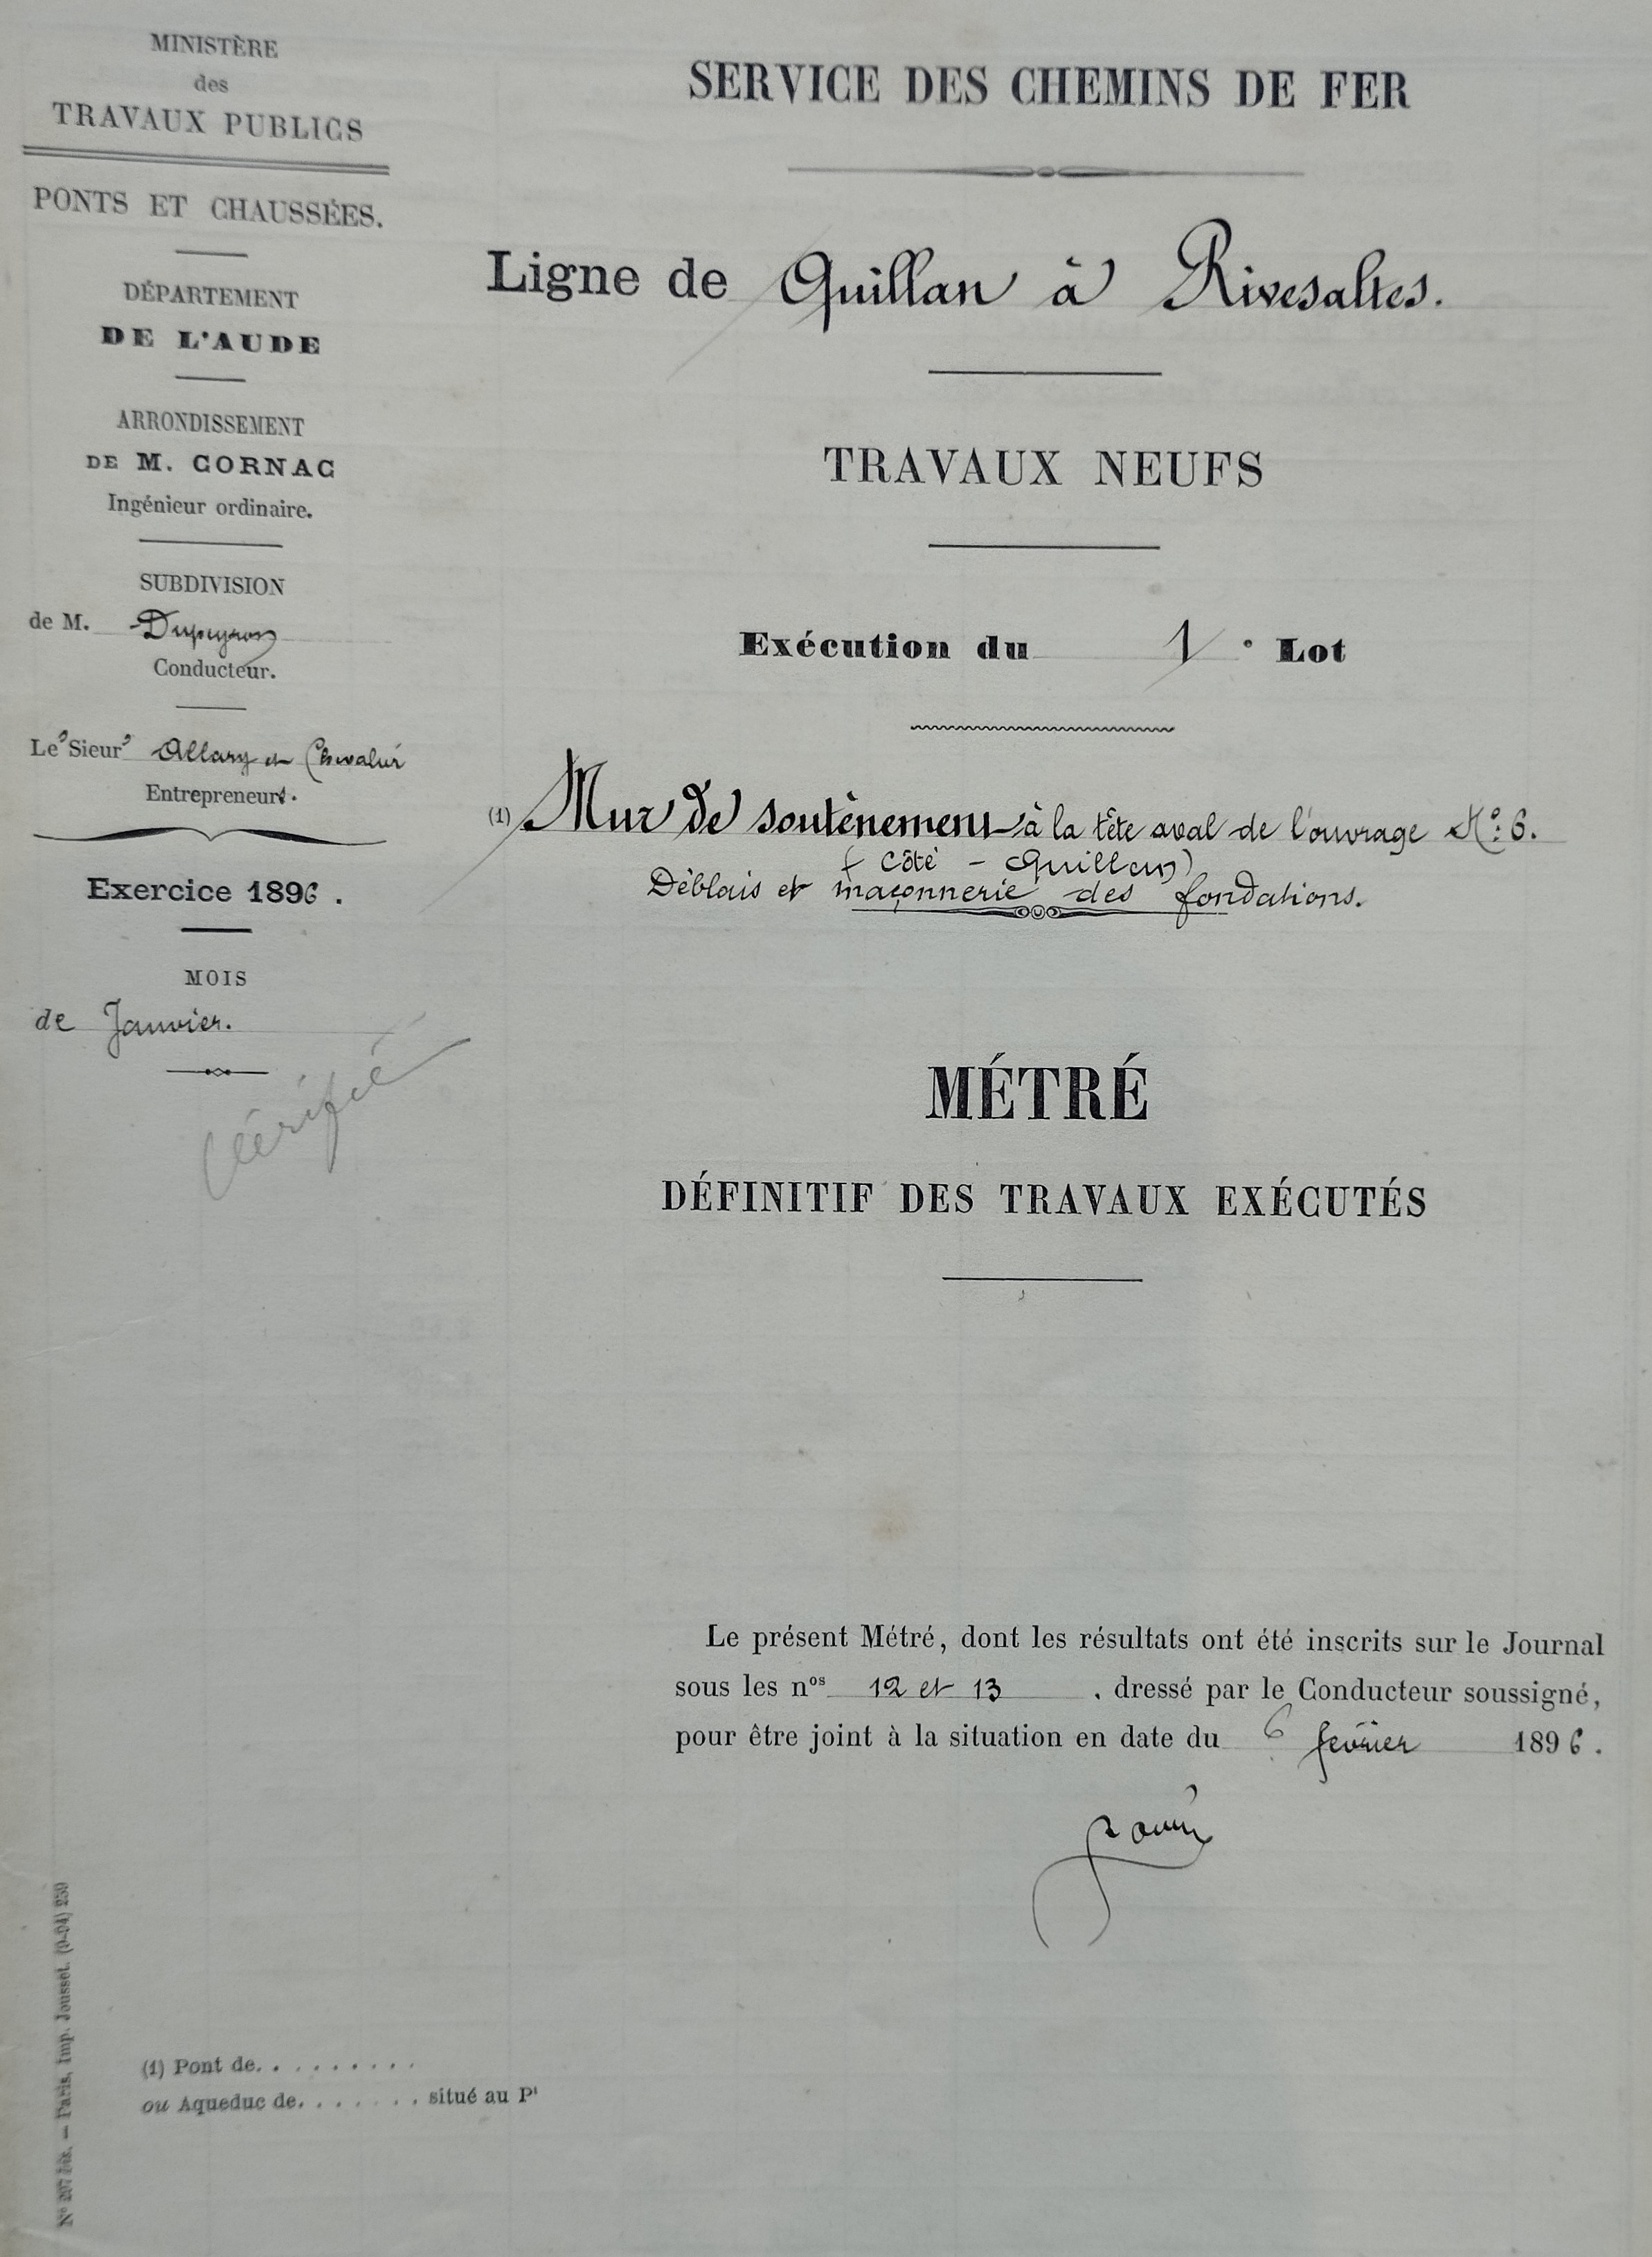 MINISTÈRE
des
TRAVAUX PUBLICS
PONTS ET CHAUSSÉES.
DÉPARTEMENT
DE L'AUDE
ARRONDISSEMENT
DE M. CORNAC
Ingénieur ordinaire.
SUBDIVISION
de M. Dupeyron
Conducteur.
Les Sieurs Allary et Chevalier
Entrepreneurs.
Exercice 1896.
MOIS
de Janvier.
Vérifié
SERVICE DES CHEMINS DE FER
Ligne de Quillan à Rivesaltes.
TRAVAUX NEUFS
Exécution du 1e Lot
(1) Mur de soutènement à la tête aval de l'ouvrage No: 6.
(Côté - Quillan)
Déblais et maçonnerie des fondations.
MÉTRÉ
DÉFINITIF DES TRAVAUX EXÉCUTÉS
Le présent Métré, dont les résultats ont été inscrits sur le Journal
sous les nos 12 et 13, dressé par le Conducteur soussigné,
pour être joint à la situation en date du 6 février 1896.
(1) Pont de. . . . . . . . .
ou Aqueduc de. . . . . . . situé au Pt
No 207 bis. — Paris, Imp. Jousset. (9-94) 250